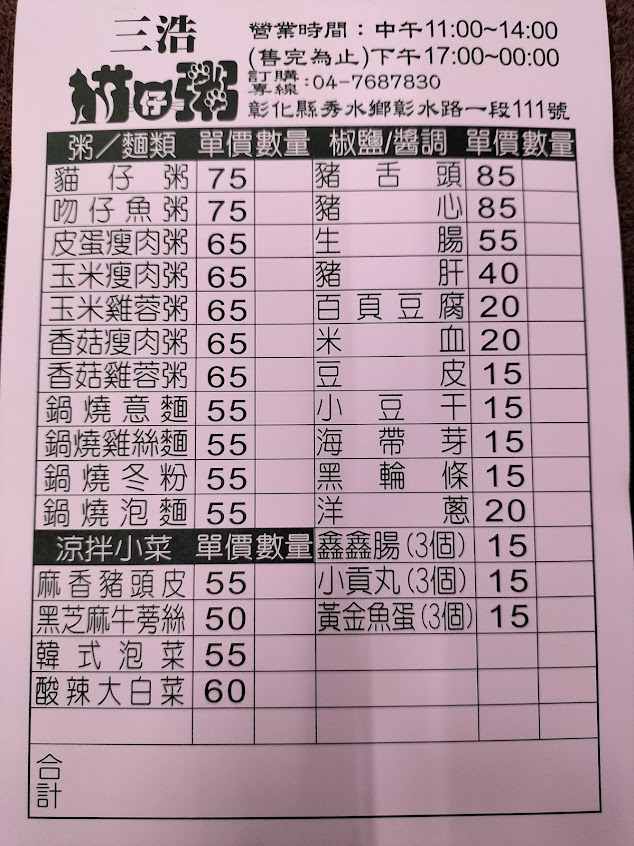 三浩
貓仔粥
營業時間：中午11:00~14:00
(售完為止)下午17:00~00:00
訂購專線:04-7687830
彰化縣秀水鄉彰水路一段111號
粥／麵類 單價 數量 椒鹽/醬調 單價 數量
貓仔粥 75 豬舌頭 85
吻仔魚粥 75 豬心 85
皮蛋瘦肉粥 65 生腸 55
玉米瘦肉粥 65 豬肝 40
玉米雞蓉粥 65 百頁豆腐 20
香菇瘦肉粥 65 米血 20
香菇雞蓉粥 65 豆皮 15
鍋燒意麵 55 小豆干 15
鍋燒雞絲麵 55 海帶芽 15
鍋燒冬粉 55 黑輪條 15
鍋燒泡麵 55 洋蔥 20
涼拌小菜 單價 數量 鑫鑫腸(3個) 15
麻香豬頭皮 55 小貢丸(3個) 15
黑芝麻牛蒡絲 50 黃金魚蛋(3個) 15
韓式泡菜 55
酸辣大白菜 60
合計